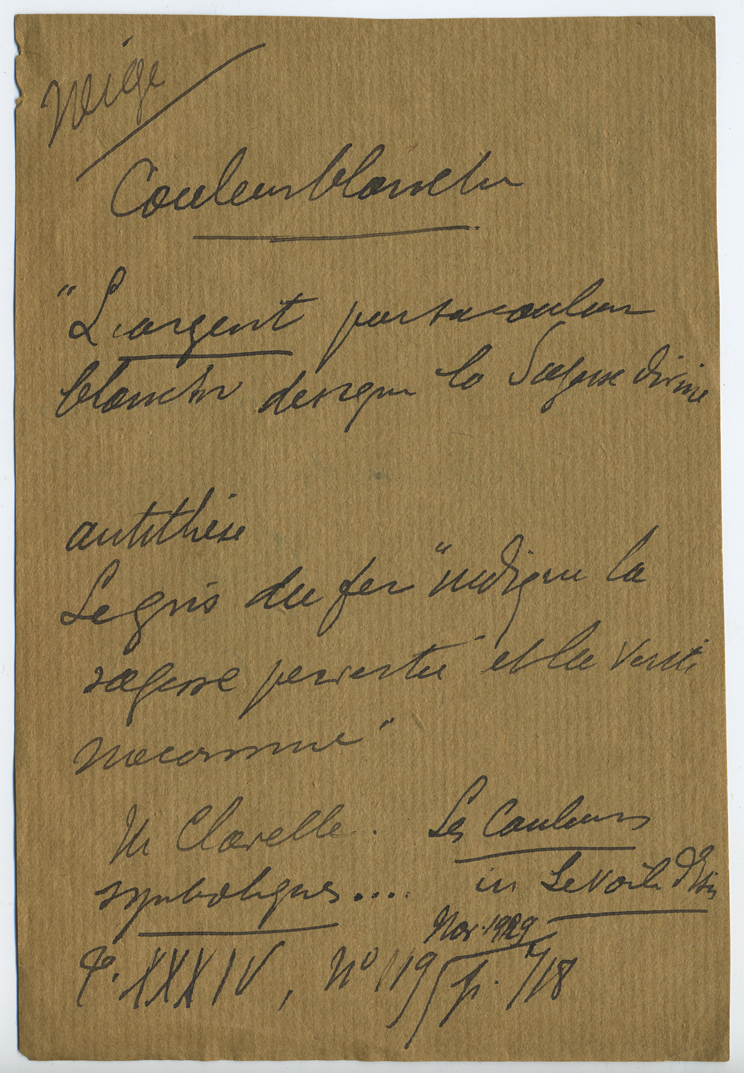 Neige
Couleur blanche
"L'argent par sa couleur
blanche designe la Sagesse divine
antithèse
Le gris du fer "indique la
sagesse pervertie" et la verité
méconnue"
M Clavelle. Les Couleurs
symboliques.... in Le Voile d'Isis
Nov. 1929
T. XXXIV, No 119 p. 718